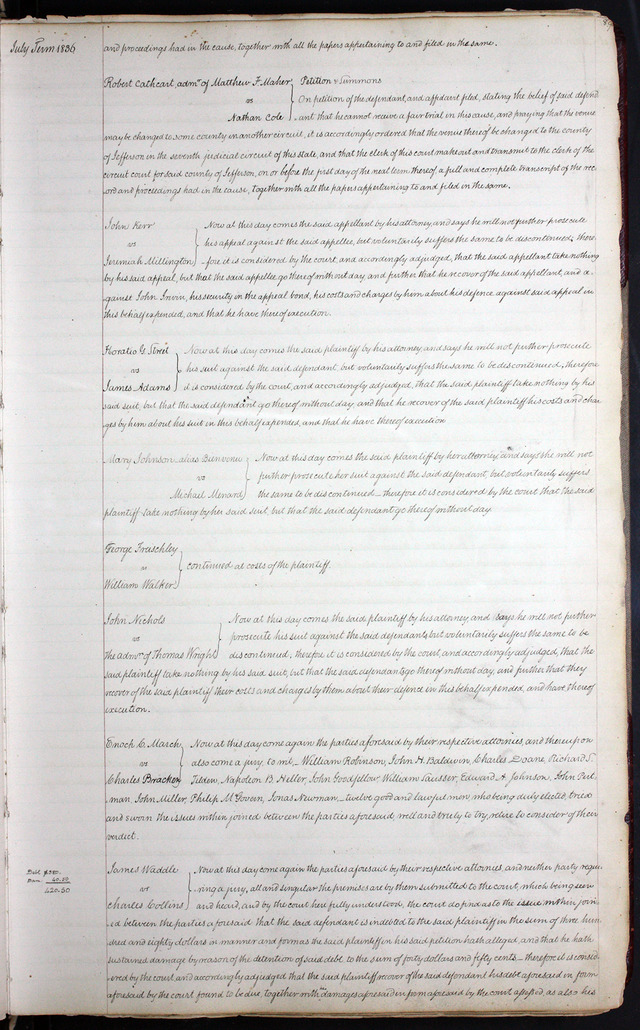 July Term 1836
and proceedings had in the cause, together with all the papers appertaining to and filed in the same.
Robert Cathcart, admr. of Matthew F. Maher } Petition & Summons
vs
On petition of the defendant, and affidavit filed, stating the belief of said defend
Nathan Cole
ant that he cannot receive a fair trial in this cause, and praying that the venue
may be changed to some county in another circuit, it is accordingly ordered that the venue thereof be changed to the county
of Jefferson in the seventh judicial circuit of this state, and that the clerk of this court make out and transmit to the clerk of the
circuit court for said county of Jefferson, on or before the first day of the next term thereof, a full and complete transcript of the rec
ord and proceedings had in the cause, together with all the papers appertaining to and filed in the same.
John Kerr } Now at this day comes the said appellant by his attorney and says he will not further prosecute
vs
his appeal against the said appellee, but voluntarily suffers the same to be discontinued, there
Jeremiah Millington
fore it is considered by the court, and accordingly adjudged, that the said appellant take nothing
by his said appeal, but that the said appellee go thereof without day and further that he recover of the said appellant, and a
gainst John Irwin, his security in the appeal bond, his costs and charges by him about his defence against said appeal in
this behalf expended, and that he have thereof execution.
Horatio G. Street } Now at this day comes the said plaintiff by his attorney, and says he will not further prosecute
vs
his suit against the said defendant, but voluntarily suffers the same to be discontinued, therefore
James Adams
it is considered by the court, and accordingly adjudged, that the said plaintiff take nothing by his
said suit, but that the said defendant go thereof without day, and that he recover of the said plaintiff his costs and char
ges by him about his suit in this behalf expended, and that he have thereof execution
Mary Johnson alias } Now at this day comes the said plaintiff by her attorney and says she will not
vs
further prosecute her suit against the said defendant, but voluntarily suffers
Michael Menard
the same to be discontinued – therefore it is considered by the court that the said
plaintiff take nothing by her said suit, but that the said defendant go thereof without day.
George Traschley
vs } continued at costs of the plaintiff.
William Walker
John Nichols } Now at this day comes the said plaintiff by his attorney, and says he will not further
vs
prosecute his suit against the said defendants, but voluntarily suffers the same to be
the admrs. of Thomas Wright
discontinued, therefore it is considered by the court, and accordingly adjudged, that the
said plaintiff take nothing by his said suit, but that the said defendants go thereof without day, and further that they
recover of the said plaintiff their costs and charges by them about their defence in this behalf expended, and have thereof
execution.
Enoch C. March } Now at this day come again the parties aforesaid by their respective attornies, and thereupon
vs
also come a jury, to wit, – William Robinson, John H. Baldwin, Charles Doane, Richard S.
Charles Bracken
Tilden, Napoleon B. Heller, John Goodfellow, William Sausser, Edward A. Johnson, John Perl
man, John Miller, Philip McGovern, Jonas Newman, – twelve good and lawful men, who being duly elected, tried
and sworn the issues within joined between the parties aforesaid, well and truly to try, retire to consider of their
verdict.
Debt $380.
Dam. 40.50
420.50
James Waddle } Now at this day come again the parties aforesaid by their respective attornies, and neither party requi
vs
ring a jury, all and singular the premises are by them submitted to the court, which being seen
Charles Collins
and heard, and by the court here fully understood, the court do find as to the issue within join
ed between the parties aforesaid that the said defendant is indebted to the said plaintiff in the sum of three hun
dred and eighty dollars in manner and form as the said plaintiff in his said petition hath alleged, and that he hath
sustained damage by reason of the detention of said debt, to the sum of forty dollars and fifty cents – therefore it is consid
ered by the court, and accordingly adjudged that the said plaintiff recover of the said defendant his debt aforesaid in form
aforesaid by the court found to be due, together with his damages aforesaid in form aforesaid by the court assessed, as also his